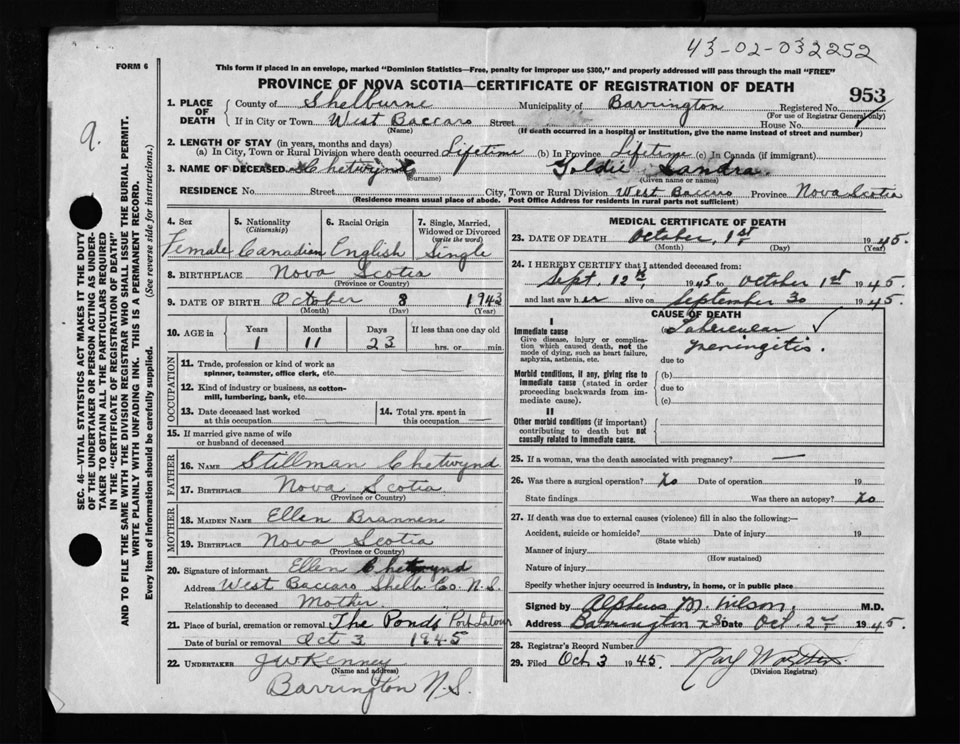 43-02-032252
FORM 6
This form if placed in an envelope, marked "Dominion Statistics—Free, penalty for improper use $300," and properly addressed will pass through the mail "FREE"
PROVINCE OF NOVA SCOTIA—CERTIFICATE OF REGISTRATION OF DEATH
953
9.
SEC. 46—VITAL STATISTICS ACT MAKES IT THE DUTY
OF THE UNDERTAKER OR PERSON ACTING AS UNDER-
TAKER TO OBTAIN ALL THE PARTICULARS REQUIRED
IN THE "CERTIFICATE OF REGISTRATION OF DEATH"
AND TO FILE THE SAME WITH THE DIVISION REGISTRAR WHO SHALL ISSUE THE BURIAL PERMIT.
WRITE PLAINLY WITH UNFADING INK. THIS IS A PERMANENT RECORD.
Every item of information should be carefully supplied. (See reverse side for instructions.)
1. PLACE OF DEATH
County of Shelburne Municipality of Barrington Registered No.
(For use of Registrar General only)
If in City or Town West Baccaro Street House No.
(Name) (If death occurred in a hospital or institution, give the name instead of street and number)
2. LENGTH OF STAY (in years, months and days)
(a) In City, Town or Rural Division where death occurred Lifetime (b) In Province Lifetime (c) In Canada (if immigrant)
3. NAME OF DECEASED Chetwynd Goldie Sandra
(Surname) (Given name or names)
RESIDENCE No. Street City, Town or Rural Division West Baccaro Province Nova Scotia
(Residence means usual place of abode. Post Office Address for residents in rural parts not sufficient)
4. Sex
Female
5. Nationality
(Citizenship)
Canadian
6. Racial Origin
English
7. Single, Married,
Widowed or Divorced
(write the word)
Single
8. BIRTHPLACE Nova Scotia
(Province or Country)
9. DATE OF BIRTH October 8 1943
(Month) (Day) (Year)
10. AGE in Years Months Days If less than one day old
1 11 23 hrs. or min.
OCCUPATION
11. Trade, profession or kind of work as
spinner, teamster, office clerk, etc.
12. Kind of industry or business, as cotton-
mill, lumbering, bank, etc.
13. Date deceased last worked
at this occupation
14. Total yrs. spent in
this occupation
15. If married give name of wife
or husband of deceased
FATHER
16. NAME Stillman Chetwynd
17. BIRTHPLACE Nova Scotia
(Province or Country)
MOTHER
18. MAIDEN NAME Ellen Brannen
19. BIRTHPLACE Nova Scotia
(Province or Country)
20. Signature of informant Ellen Chetwynd
Address West Baccaro Shelb Co. N.S.
Relationship to deceased Mother.
21. Place of burial, cremation or removal The Ponds Port Latour
Date of burial or removal Oct 3 1945
22. UNDERTAKER J W Kenney
(Name and address)
Barrington N.S.
MEDICAL CERTIFICATE OF DEATH
23. DATE OF DEATH October, 1st 1945.
(Month) (Day) (Year)
24. I HEREBY CERTIFY that I attended deceased from:
Sept. 12th, 1945 to October 1st 1945
and last saw her alive on September 30 1945.
CAUSE OF DEATH
I
Immediate cause
Give disease, injury or complica-
tion which caused death, not the
mode of dying, such as heart failure,
asphyxia, asthenia, etc.
(a) Tubercular
meningitis.
due to
Morbid conditions, if any, giving rise to
immediate cause (stated in order
proceeding backwards from im-
mediate cause).
(b)
due to
(c)
II
Other morbid conditions (if important)
contributing to death but not
causally related to immediate cause.
25. If a woman, was the death associated with pregnancy? —
26. Was there a surgical operation? No Date of operation 19
State findings Was there an autopsy? No
27. If death was due to external causes (violence) fill in also the following:—
Accident, suicide or homicide? Date of injury 19
(State which)
Manner of injury
(How sustained)
Nature of injury
Specify whether injury occurred in industry, in home, or in public place
Signed by Alpheus M. Wilson, M.D.
Address Barrington N.S. Date Oct. 2nd 1945.
28. Registrar's Record Number
29. Filed Oct 3 1945
(Division Registrar)